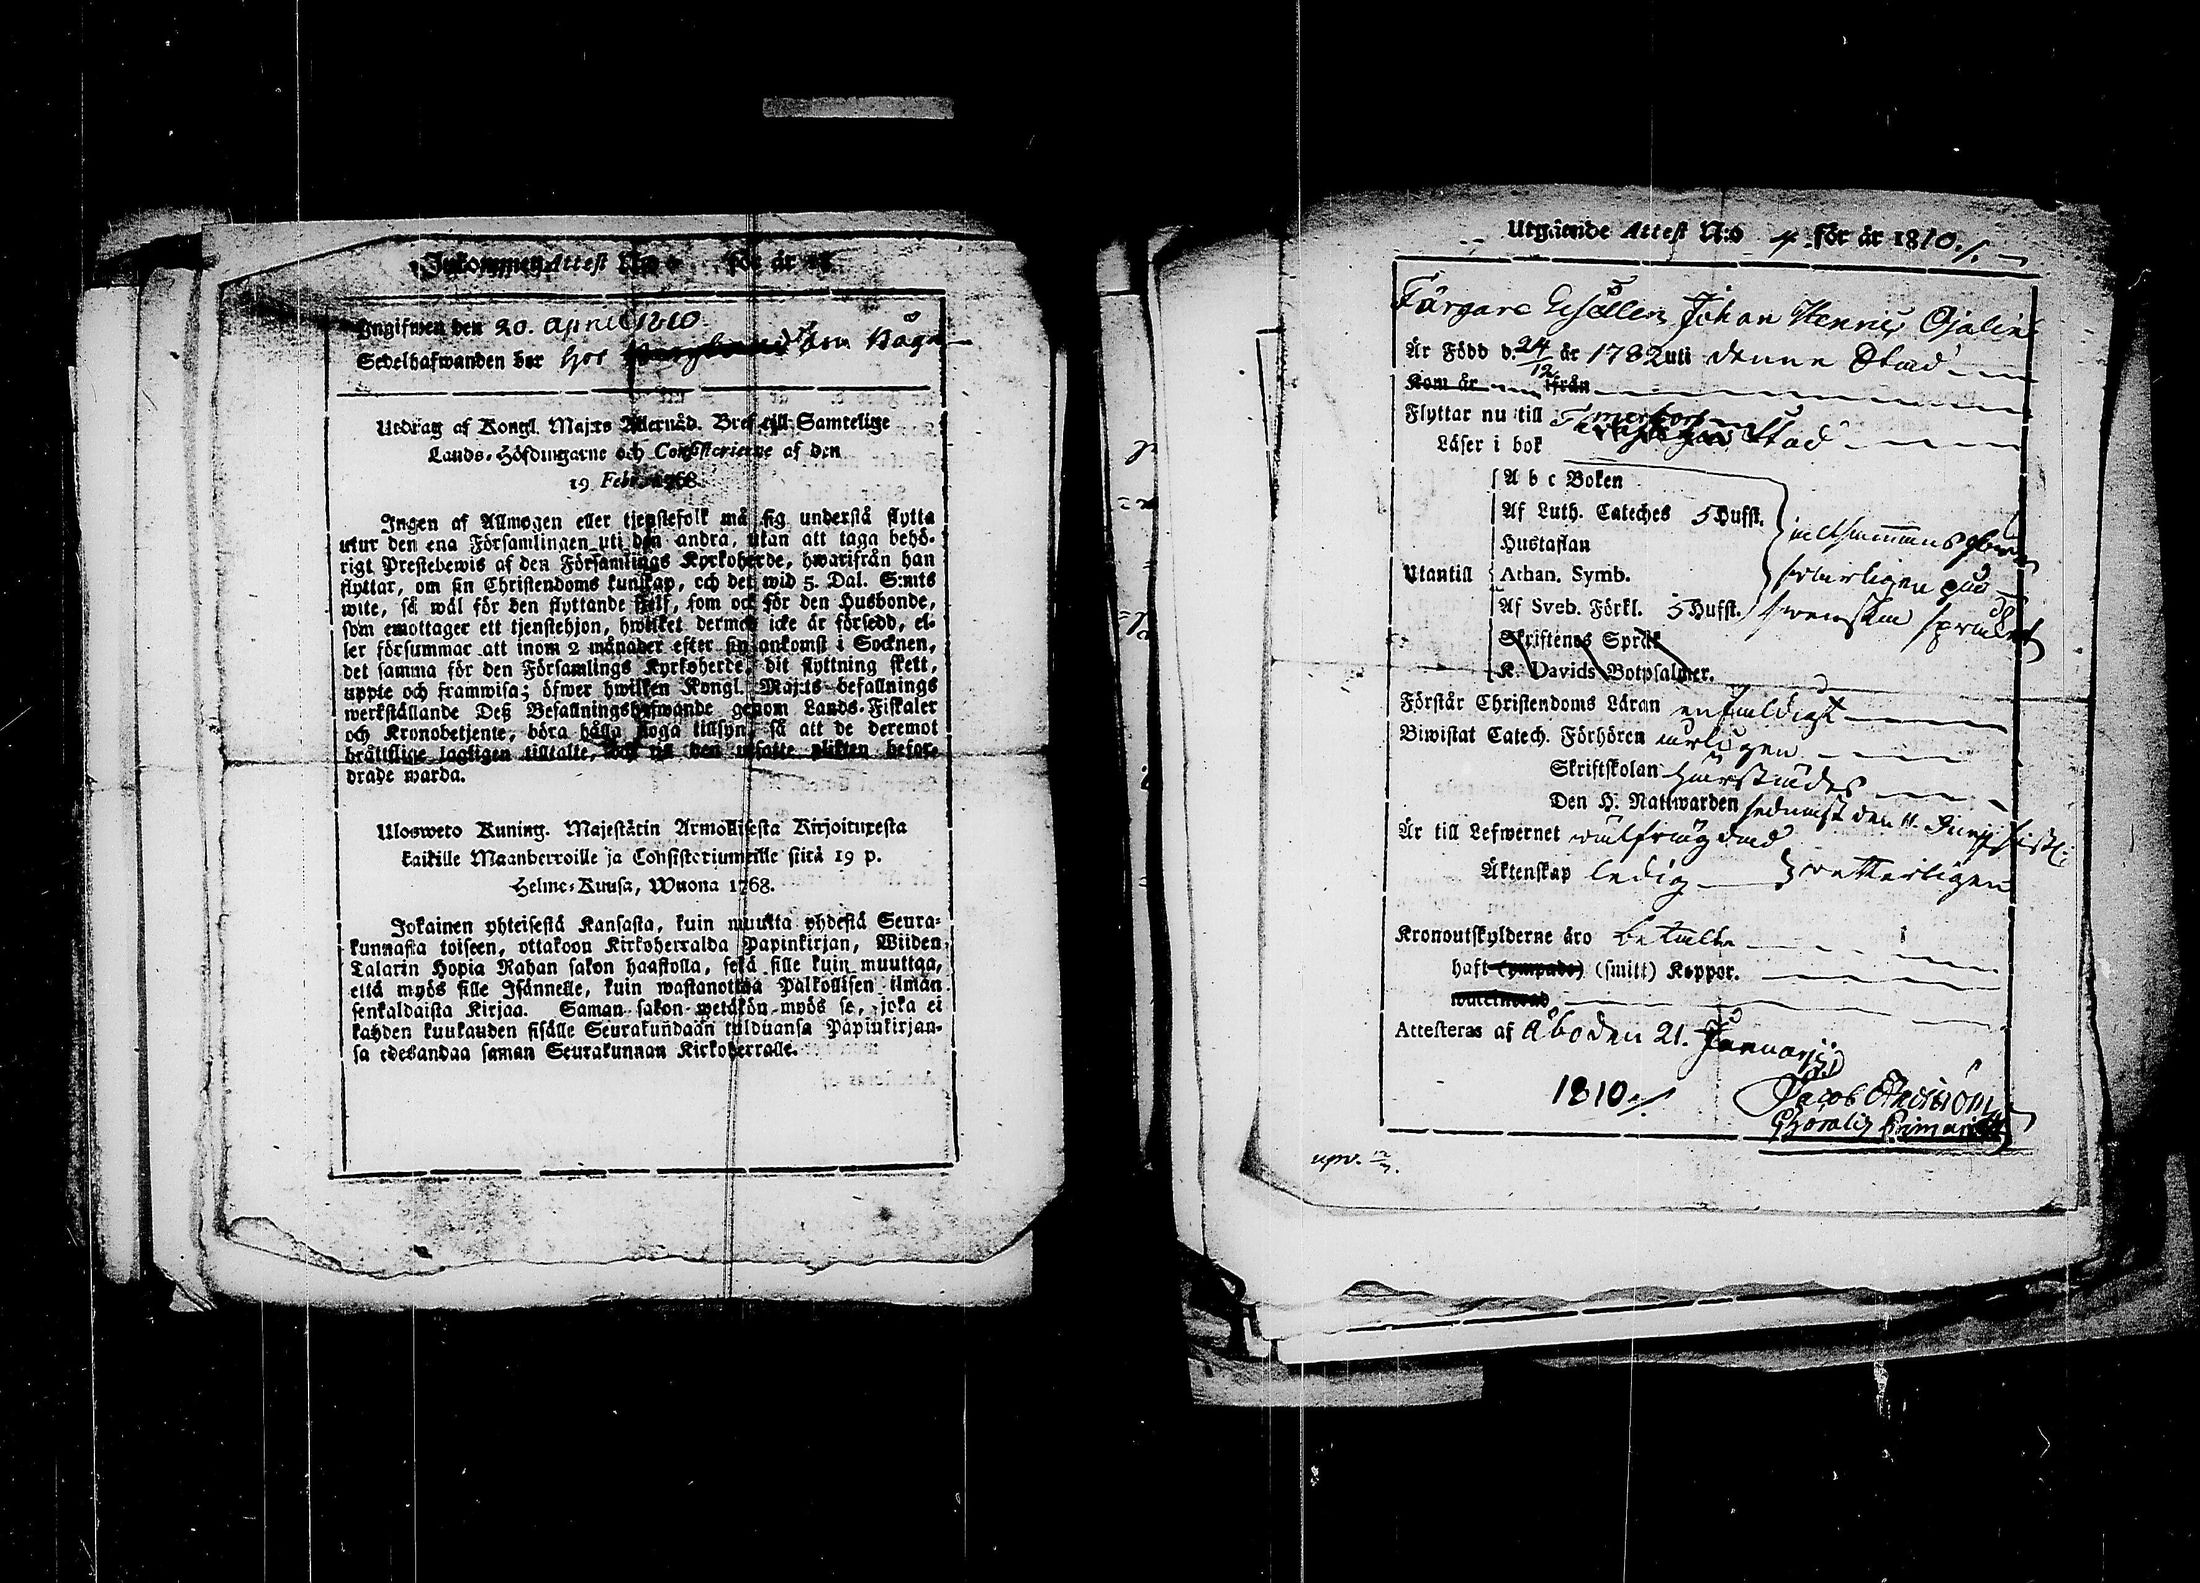 Inkommen Attest N:o för år 18
Ingifwen den 20. April 1810
Sedelhafwanden bor hos
Utdrag af Kongl. Maj:ts Allernåd. Bref till Samtelige
Lands-Höfdingarne och Consistorierne af den
19 Febr. 1768.
Ingen af Allmogen eller tjenstefolk må sig understå flytta
utur den ena Församlingen uti den andra, utan att taga behö-
rigt Prestebewis af den Församlings Kyrkoherde, hwarifrån han
flyttar, om sin Christendoms kunskap, och det wid 5. Dal. S:mts
wite, så wäl för den flyttande sielf, som ock för den Husbonde,
som emottager ett tjenstehjon, hwilket dermed icke är försedd, el-
ler försummar att inom 2 månader efter sin ankomst i Socknen,
det samma för den Församlings Kyrkoherde, dit flyttning skett,
uppte och framwisa; öfwer hwilken Kongl. Maj:ts befallnings
werkställande Deß Befallningshafwande genom Lands-Fiskaler
och Kronobetjente, böra hålla noga tillsyn, så att de deremot
bråttslige lagligen tilltalte, och til den utsatte plikten befor-
drade warda.
Ulosweto Kuning. Majestätin Armollisesta Kirjoituxesta
kaikille Maanherroille ja Consistoriumeille siitä 19 p.
Helme-Kuusa, Wuona 1768.
Jokainen yhteisestä Kansasta, kuin muutta yhdestä Seura-
kunnasta toiseen, ottakoon Kirkoherralda Papinkirjan, Wiiden
Talarin Hopia Rahan sakon haastolla, sekä sille kuin muuttaa,
että myös sille Isännelle, kuin wastanottaa Palkollisen ilman
senkaldaista Kirjaa. Saman sakon wetäkön myös se, joka ei
kahden kuukauden sisälle Seurakundaan tulduansa Papinkirjan-
sa edesandaa saman Seurakunnan Kirkoherralle.
Utgående Attest N:o 4 för år 1810.
Färgare Gesällen Johan Henric Ojalin
Är Född d. 24/12 år 1782 uti denne Stad
Kom år ifrån
Flyttar nu till Stad
Läser i bok
A b c Boken
Af Luth. Cateches 5 Hufst.
Hustaflan
Utantill Athan. Symb.
Af Sveb. Förkl. 5 Hufst.
swenska språket
Skriftenes Språk
K. Davids Botpsalmer.
Förstår Christendoms Läran enfaldigt
Biwistat Catech. Förhören årligen
Skriftskolan härstädes
Den H. Nattwarden sednast den
Är till Lefwernet wälfrägdad
Äktenskap ledig wetterligen
Kronoutskylderne äro betalte
haft (ympade) (smitt) Koppor.
Attesteras af Åbo den 21. Januarii
1810.
Jacob